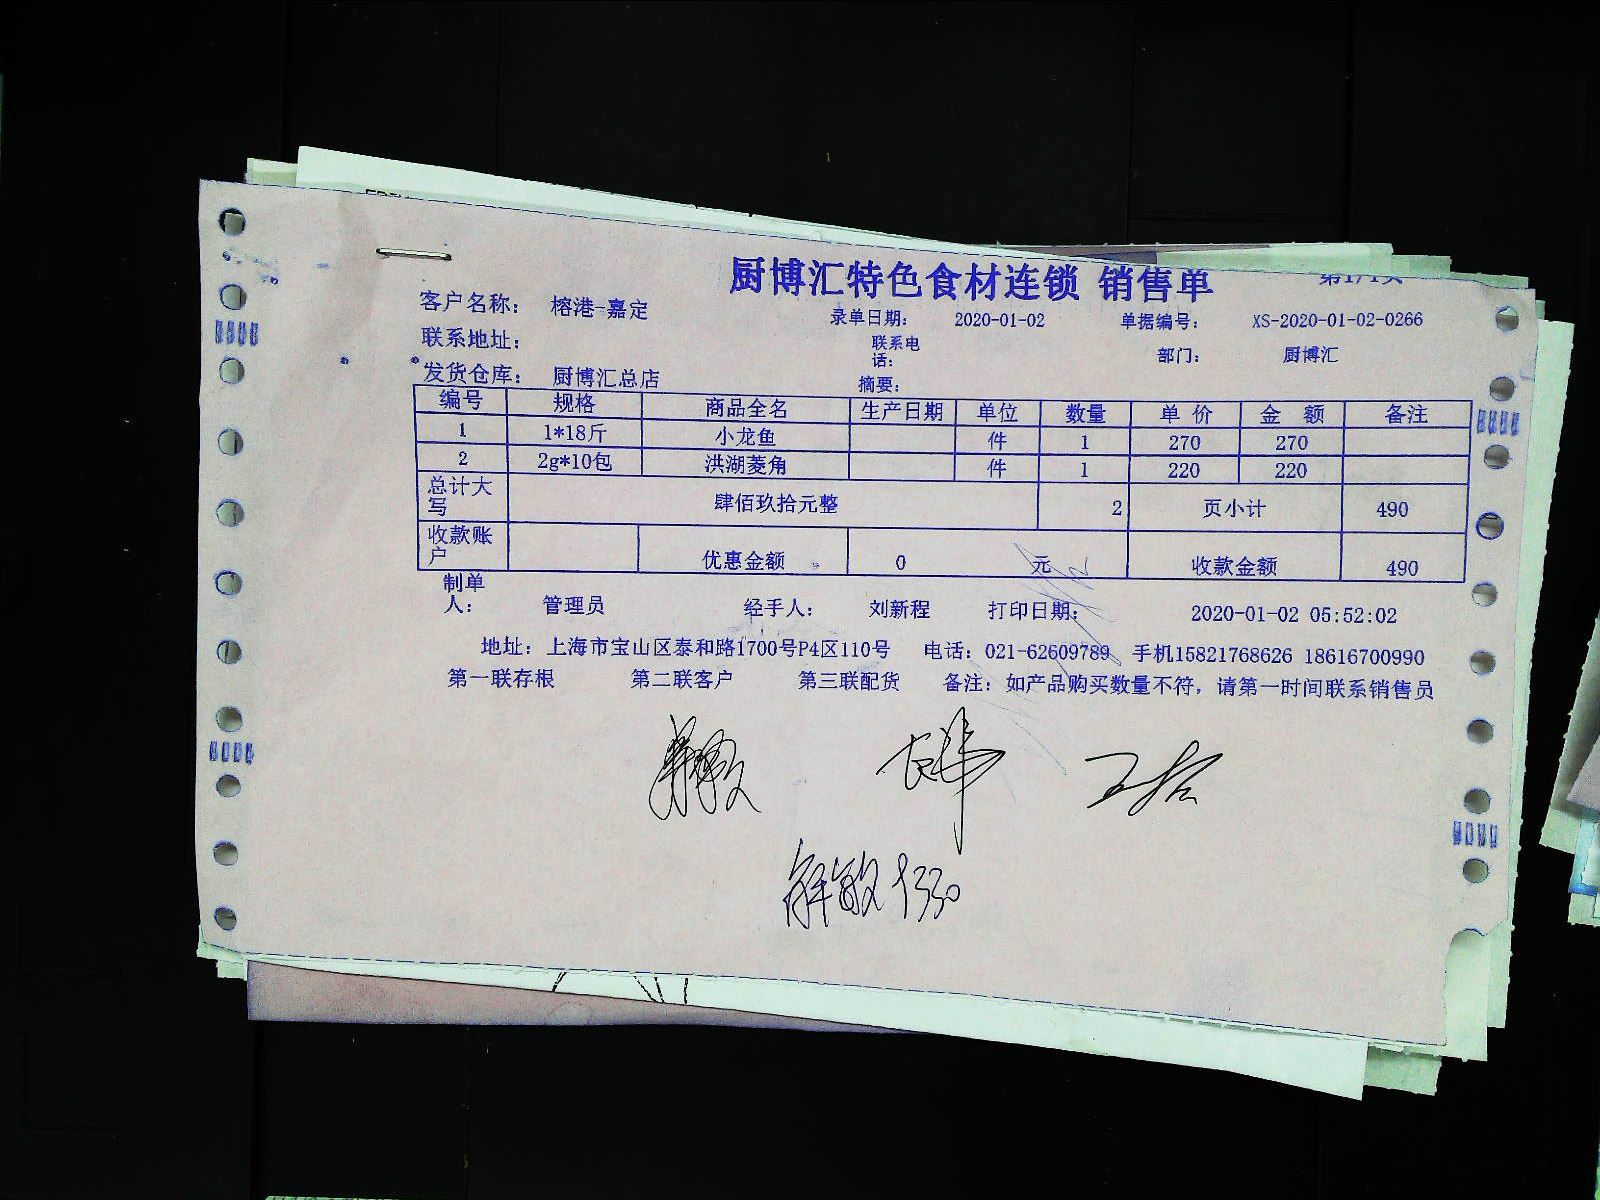 厨博汇特色食材连锁 销售单 第1/1页
客户名称： 榕港-嘉定 录单日期： 2020-01-02 单据编号： XS-2020-01-02-0266
联系地址： 联系电话： 部门： 厨博汇
发货仓库： 厨博汇总店 摘要：
编号 规格 商品全名 生产日期 单位 数量 单 价 金 额 备注
1 1*18斤 小龙鱼 件 1 270 270
2 2g*10包 洪湖菱角 件 1 220 220
总计大写 肆佰玖拾元整 2 页小计 490
收款账户 优惠金额 0 元 收款金额 490
制单人： 管理员 经手人： 刘新程 打印日期： 2020-01-02 05:52:02
地址：上海市宝山区泰和路1700号P4区110号 电话：021-62609789 手机15821768626 18616700990
第一联存根 第二联客户 第三联配货 备注：如产品购买数量不符，请第一时间联系销售员